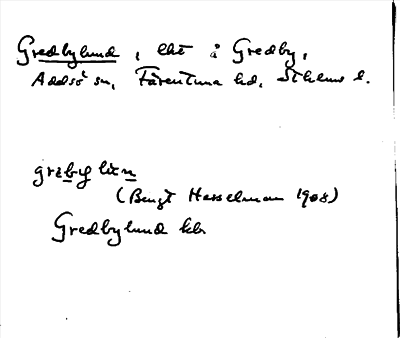 Gredbylund, lht å Gredby,
Adelsö sn, Färentuna hd, Sthlms l.
grebylun
(Bengt Hesselman 1908)
Gredbylund kb